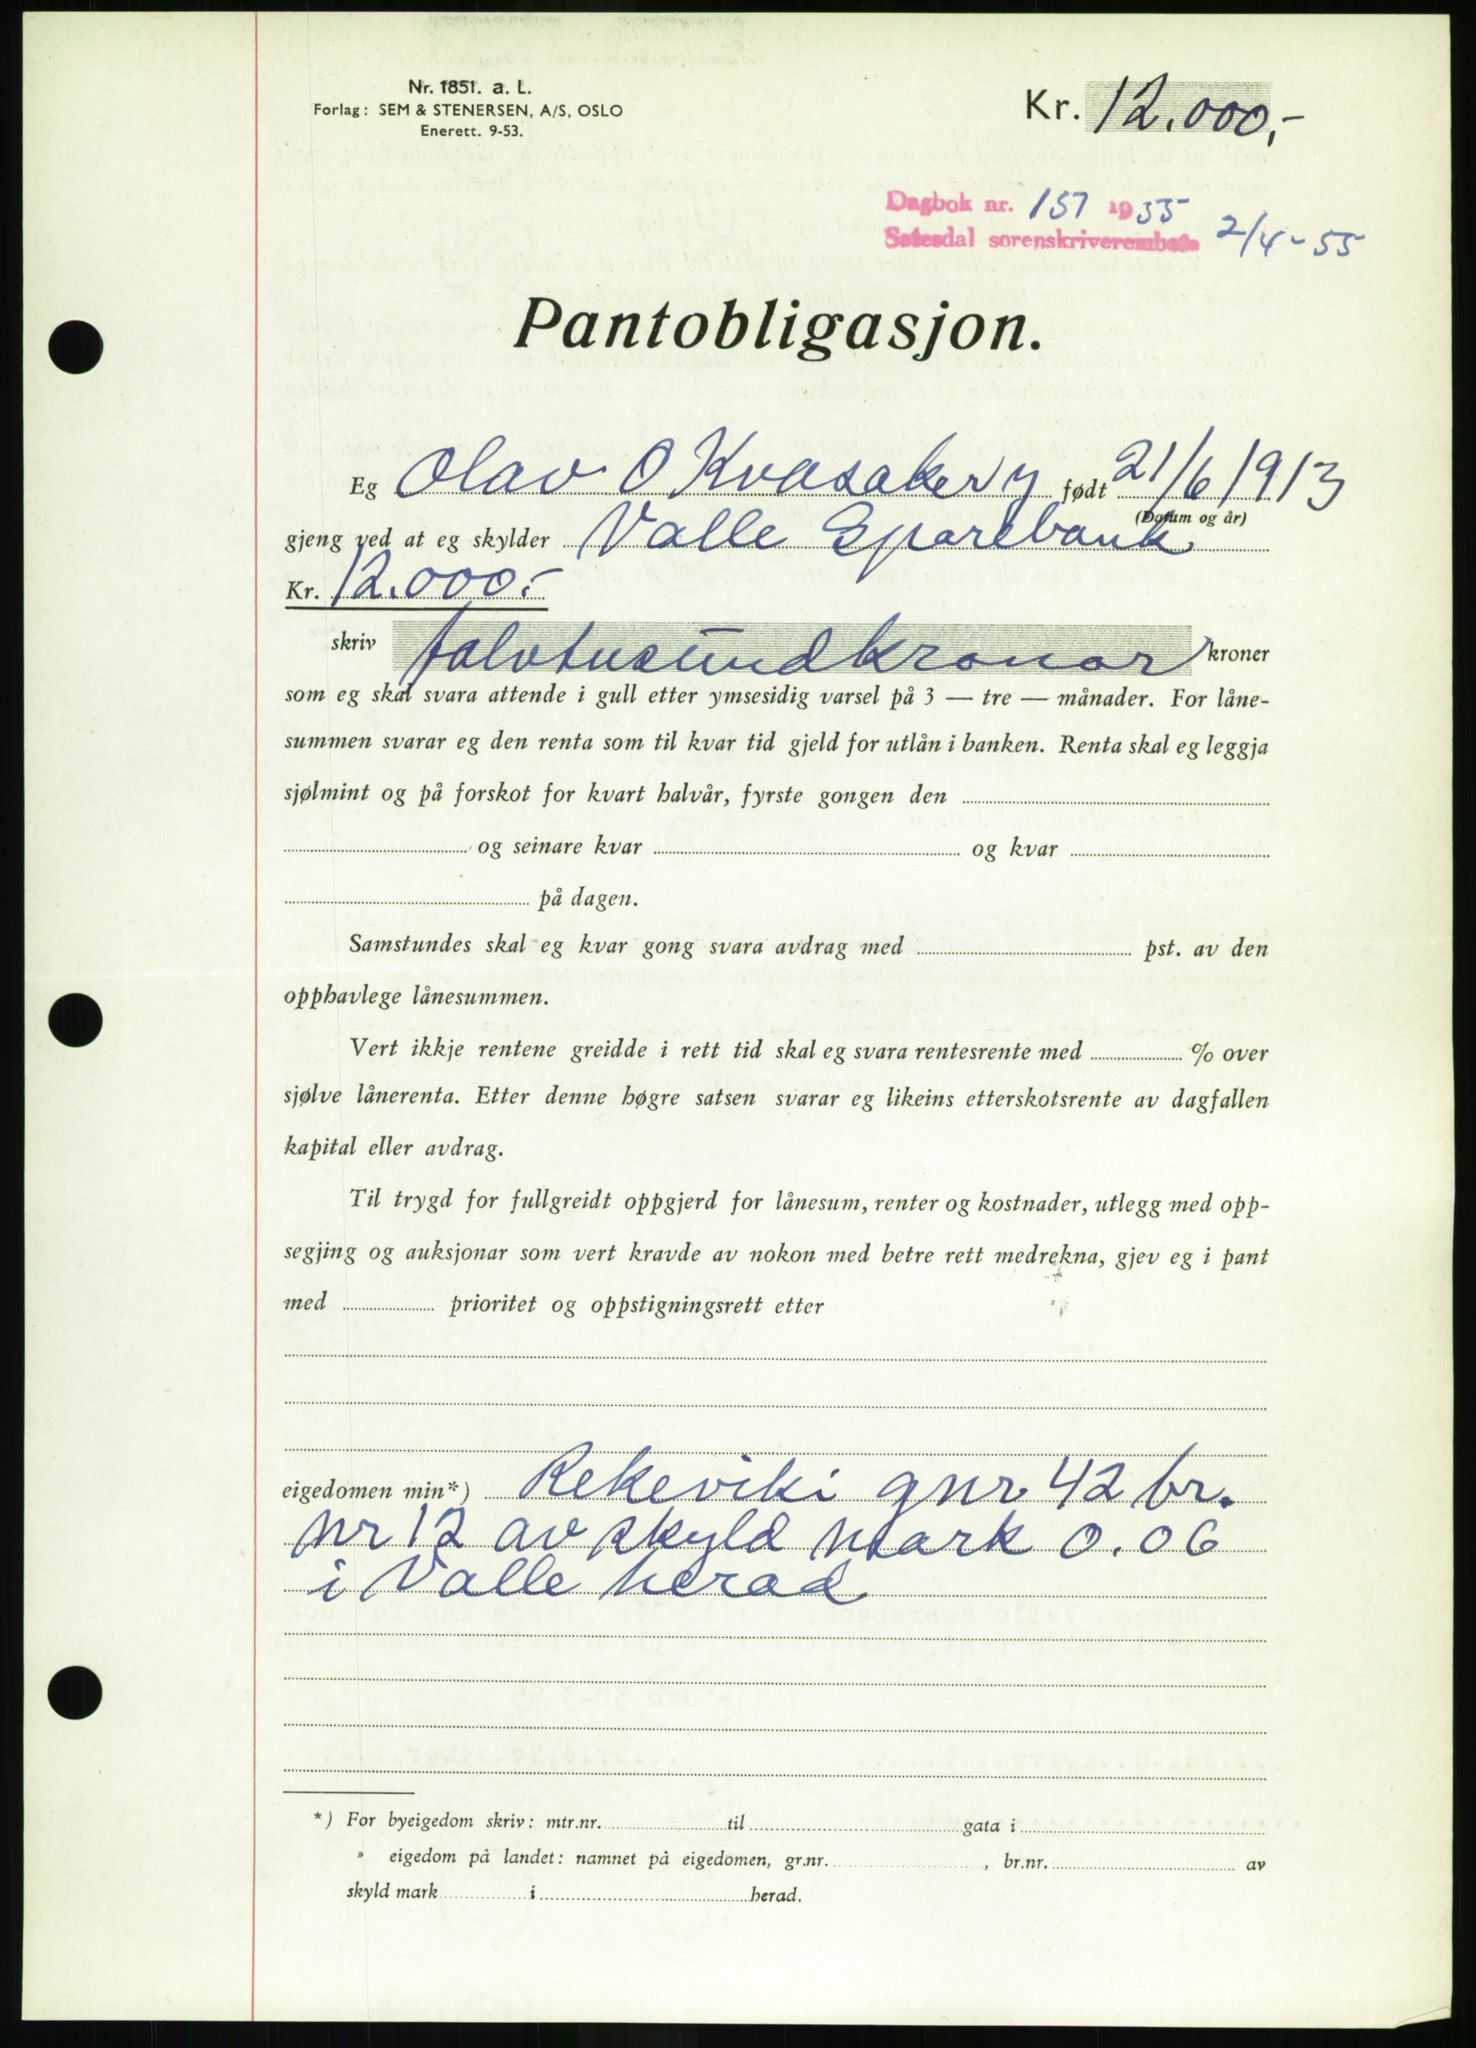 Nr. 1851. a. L.
Forlag: SEM & STENERSEN, A/S, OSLO
Enerett. 9-53.
Kr. 12.000,-
Dagbok nr. 157 1955
Setesdal sorenskriverembete 2/4-55
Pantobligasjon.
Eg Olav O Kvasaker født 21/6 1913
(Datum og år)
gjeng ved at eg skylder Valle Sparebank
Kr. 12.000.-
skriv tolvtusundkronor kroner
som eg skal svara attende i gull etter ymsesidig varsel på 3 — tre — månader. For låne-
summen svarar eg den renta som til kvar tid gjeld for utlån i banken. Renta skal eg leggja
sjølmint og på forskot for kvart halvår, fyrste gongen den
og seinare kvar og kvar
på dagen.
Samstundes skal eg kvar gong svara avdrag med pst. av den
opphavlege lånesummen.
Vert ikkje rentene greidde i rett tid skal eg svara rentesrente med % over
sjølve lånerenta. Etter denne høgre satsen svarar eg likeins etterskotsrente av dagfallen
kapital eller avdrag.
Til trygd for fullgreidt oppgjerd for lånesum, renter og kostnader, utlegg med opp-
segjing og auksjonar som vert kravde av nokon med betre rett medrekna, gjev eg i pant
med prioritet og oppstigningsrett etter
eigedomen min*) Rekeviki gnr 42 br.
nr 12 av skyld mark 0.06
i Valle herad
*) For byeigedom skriv: mtr.nr. til gata i
» eigedom på landet: namnet på eigedomen, gr.nr. , br.nr. av
skyld mark i herad.